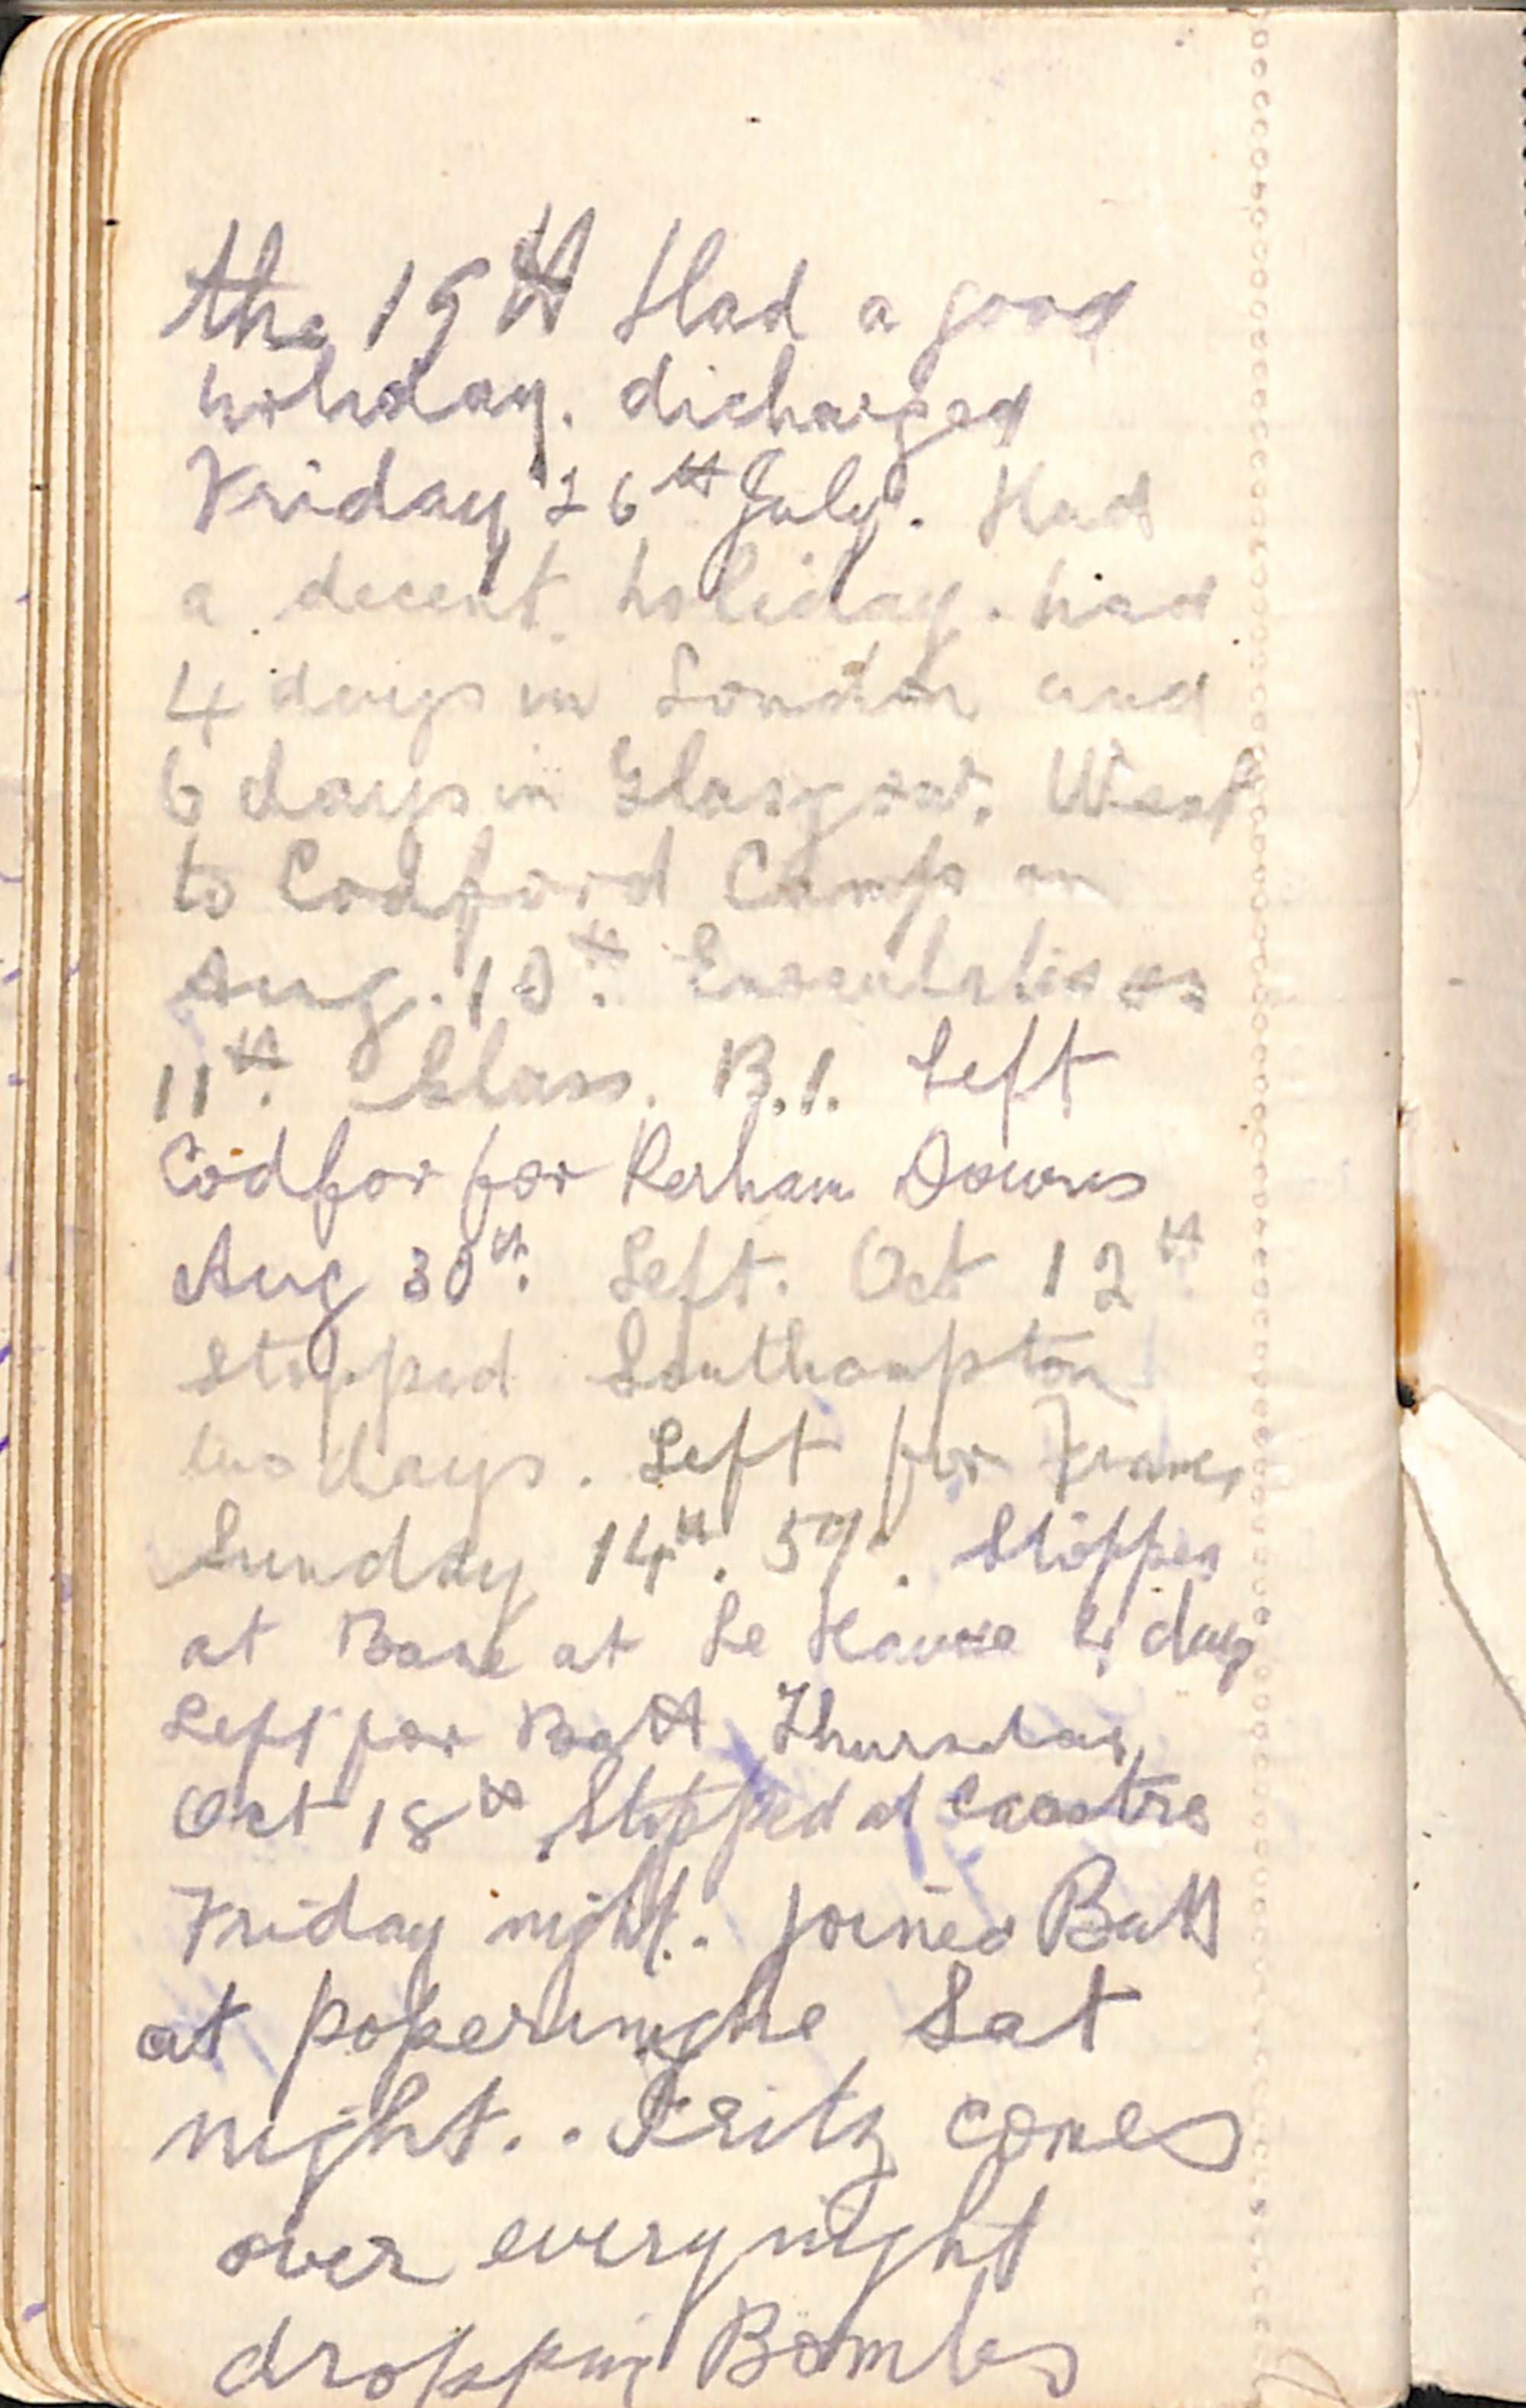 the 19th Had a good
holiday. dicharged
Friday 26th July. Had
a decent holiday. had
4 days in London and
6 days in Glasgow. West
to Codford Camp on
Aug. 10th.
11th. Class. B.1. Left
Codfor for Perham Downs
Aug 30th. Left. Oct 12th
stopped Southampton
two days. Left for France
Sunday 14th. Stopped
at Base at Le Havre 4 days
Left for Batt Thursday
Oct 18th Stopped at Caestre
Friday night. joined Batt
at poperinghe Sat
night.. Fritz comes
over every night
dropping Bombs